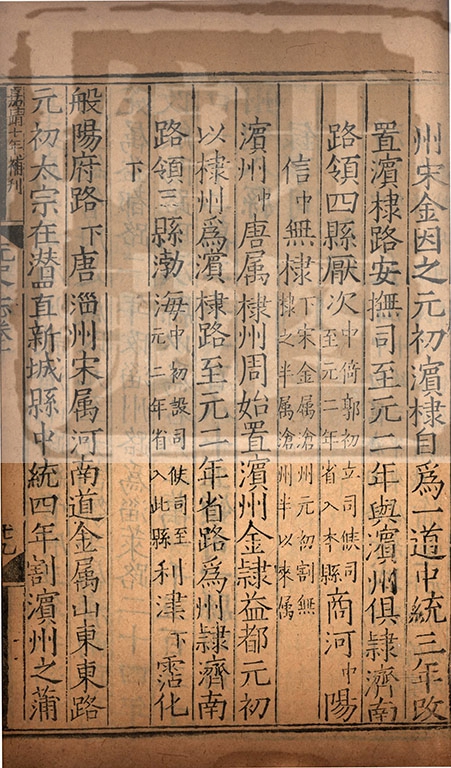 州宋金因之元初濱棣自爲一道中統三年改
置濱棣路安撫司至元二年與濱州俱隷濟南
路領四縣厭次中倚郭初立司候司至元二年省入本縣商河中陽
信中無棣下宋金属滄州元初割無棣之半属滄州半以來属
濱州中唐属棣州周始置濱州金隷益都元初
以棣州爲濱棣路至元二年省路爲州隷濟南
路領三縣渤海中初設司候司至元二年省入此縣利津下霑化
下
般陽府路下唐淄州宋属河南道金属山東東路
元初太宗在潛置新城縣中統四年割濱州之蒲
嘉靖十年補刊